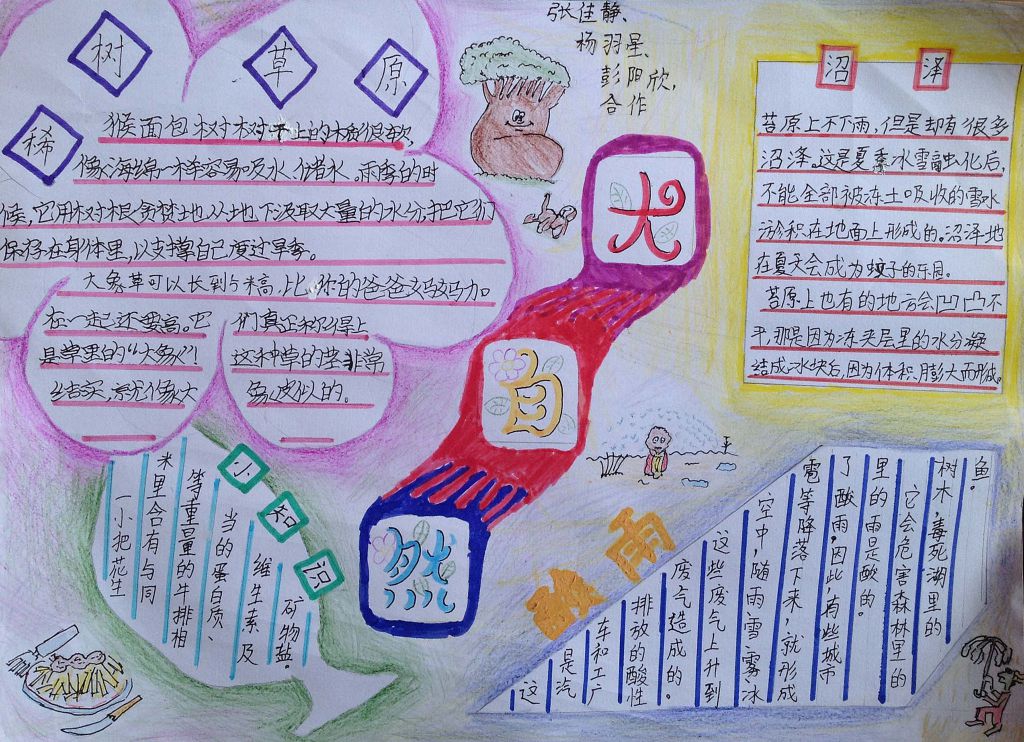 张佳静、
杨羽星、
彭阳欣,
合作
大
自
然
稀
树
草
原
猴面包树树干上的木质很软,
像海绵一样容易吸水、储水。雨季的时
候,它用树根贪婪地从地下汲取大量的水分,把它们
保存在身体里,以支撑自己度过旱季。
大象草可以长到5米高,比你的爸爸妈妈加
在一起还要高。它
是草里的“大象”!
结实,就像大
们真正称得上
这种草的茎非常
象皮似的。
沼
泽
苔原上不下雨,但是却有很多
沼泽。这是夏季冰雪融化后,
不能全部被冻土吸收的雪水
淤积在地面上形成的。沼泽地
在夏天会成为蚊子的乐园。
苔原上也有的地方会凹凸不
平,那是因为冻夹层里的水分凝
结成冰块后,因为体积膨大而形成。
小
知
识
一小把花生
米里含有与同
等重量的牛排相
当的蛋白质、
维生素及
矿物盐。
酸
雨
这
是汽
车和工厂
排放的酸性
废气造成的。
这些废气上升到
空中,随雨、雪、雾、冰
雹等降落下来,就形成
了酸雨,因此,有些城市
里的雨是酸的。
它会危害森林里的
树木,毒死湖里的
鱼。